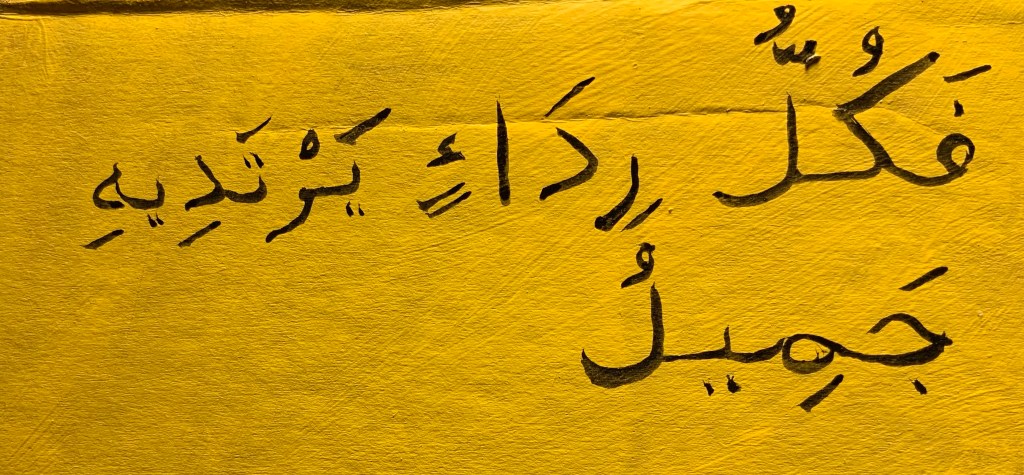 فَكُلُّ رِدَاءٍ يَرْتَدِيهِ
جَمِيلُ